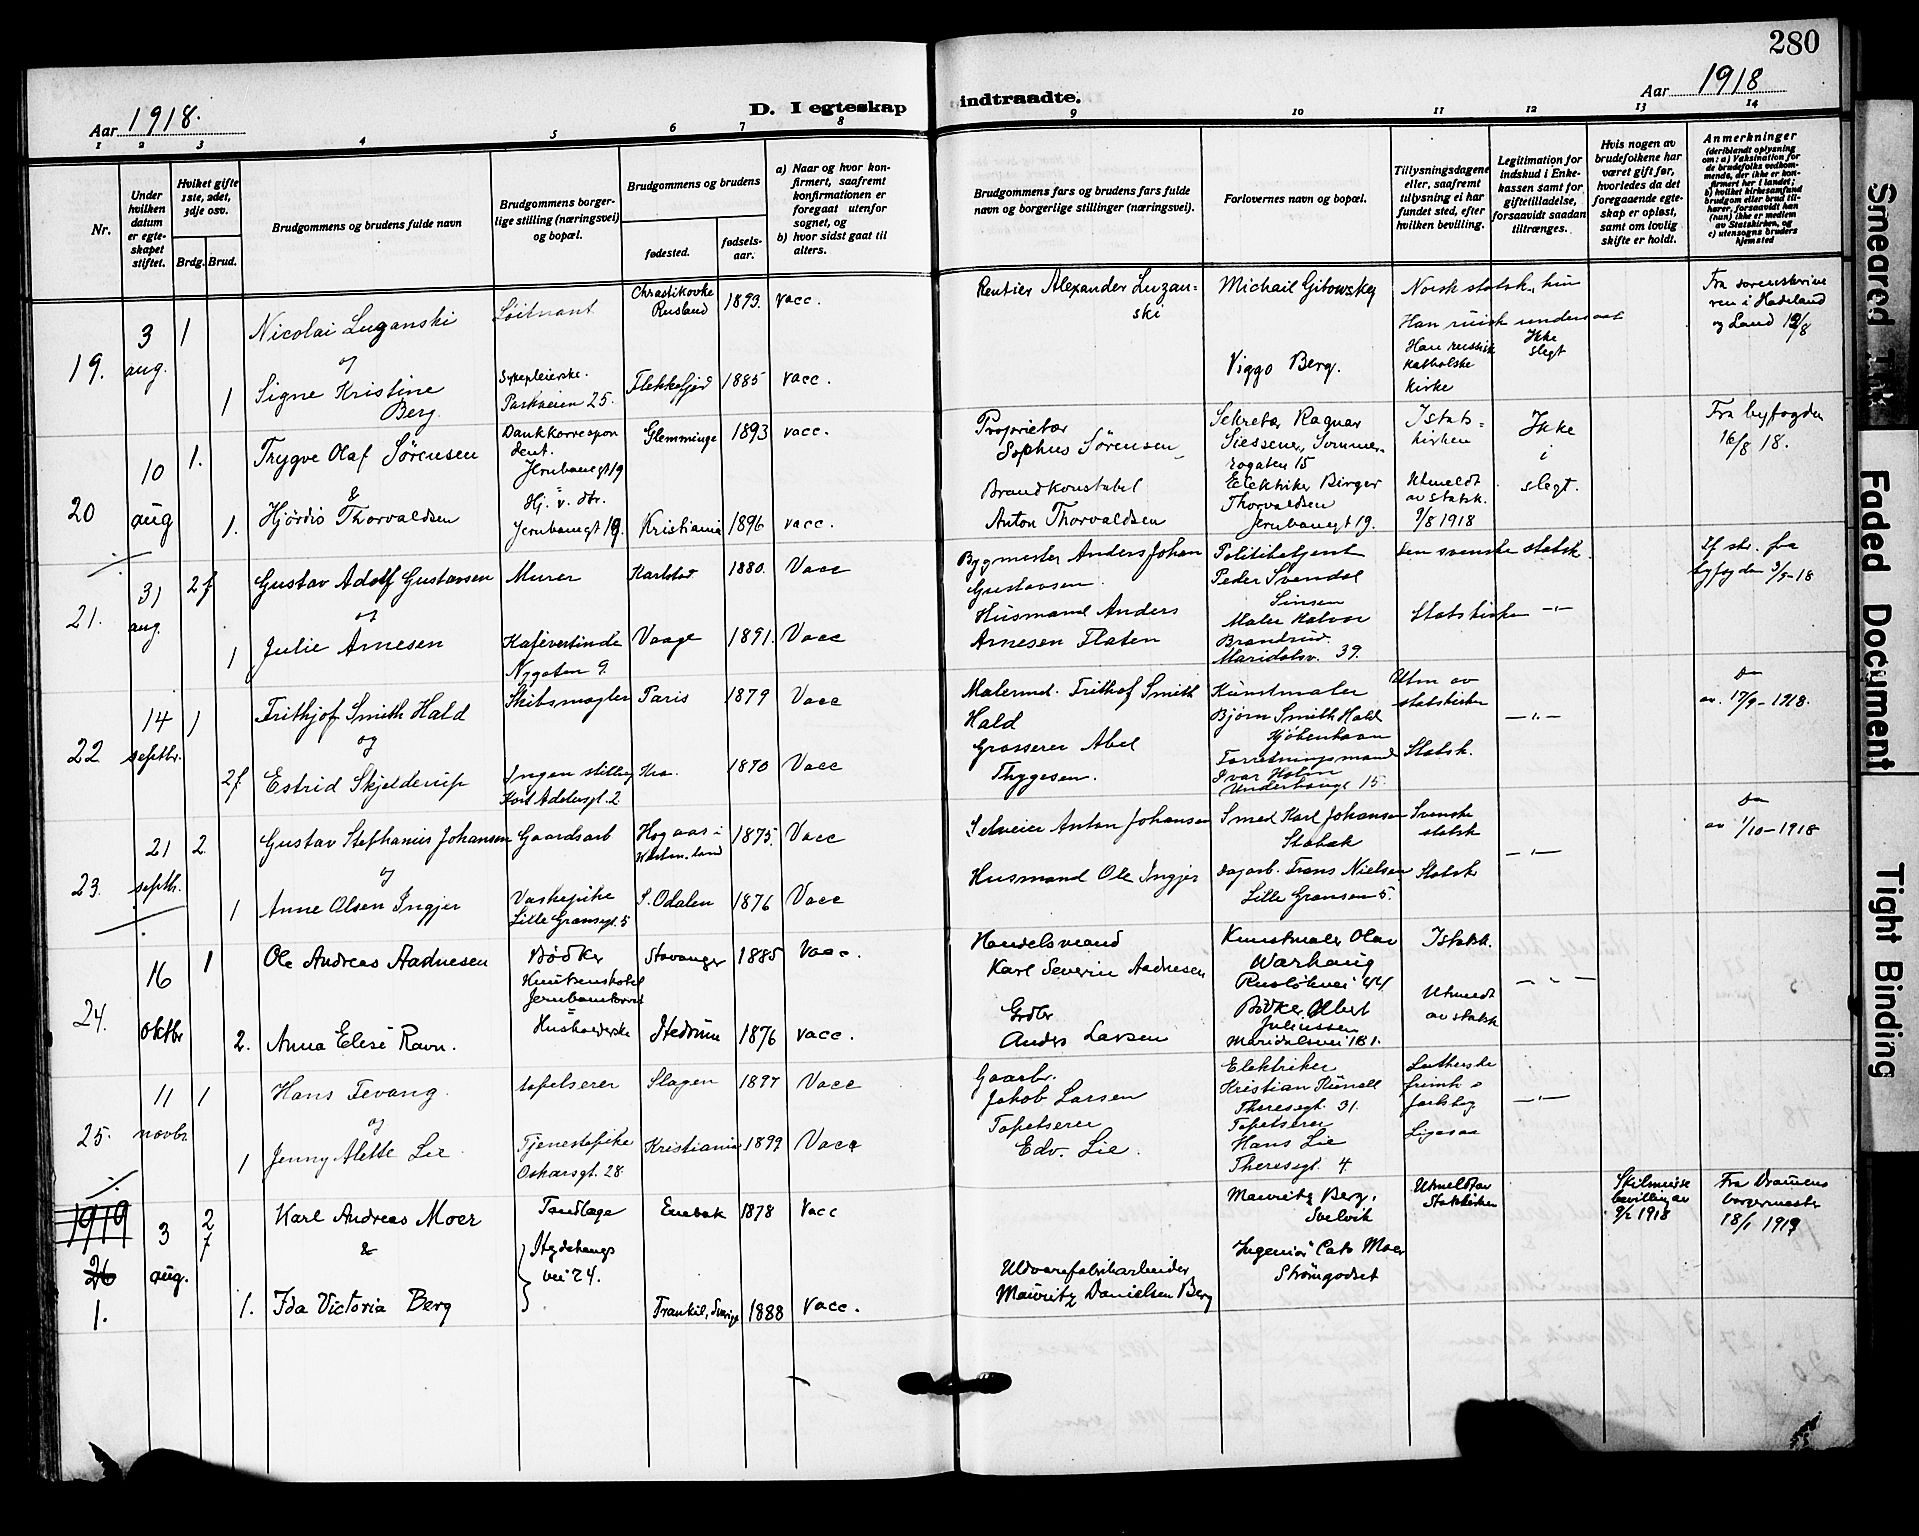 280
Aar 1918.
D. I egteskap
indtraadte.
Aar 1918
1 2 3 4 5 6 7 8
9 10 11 12 13 14
Nr.
Under hvilken datum er egteskapet stiftet.
Hvilket gifte 1ste, 2det, 3dje osv.
Brdg. Brud.
Brudgommens og brudens fulde navn
Brudgommens borgerlige stilling (næringsvei) og bopæl.
Brudgommens og brudens
fødested.
fødselsaar.
a) Naar og hvor konfirmert, saafremt konfirmationen er foregaat utenfor sognet, og
b) hvor sidst gaat til alters.
Brudgommens fars og brudens fars fulde navn og borgerlige stillinger (næringsvei).
Forlovernes navn og bopæl.
Tillysningsdagene eller, saafremt tillysning ei har fundet sted, efter hvilken bevilling.
Legitimation for indskud i Enkekassen samt for giftetilladelse, forsaavidt saadan tiltrænges.
Hvis nogen av brudefolkene har været gift før, hvorledes da det foregaaende egteskap er opløst, samt om lovlig skifte er holdt.
Anmerkninger
(deriblandt oplysning om: a) Vaksination for de brudefolks vedkommende, der ikke er konfirmert her i landet; b) hvilket kirkesamfund brudgom eller brud tilhører, forsaavidt han (hun) ikke er medlem av Statskirken, og c) utensogns bruders hjemsted
19.
3 aug.
1
Nicolai Luganski
og
Løitnant
Rusland
1893.
vacc.
1
Signe Kristine
Berg.
Sykepleierske.
Parkveien 25.
Flekkefjord
1885
vacc.
Rentier Alexander Luzanski
Michail Gibowsky
Viggo Berg.
Norsk statsk. hun
Han russisk undersaat
Han russisk
katholske
kirke
Ikke
slegt
Fra sorenskriveren i Hadeland
og Land
20
10 aug
1.
Trygve Olaf Sørensen
&
Bankkorrespondent.
Jernbanegt 19
Glemminge
1893
vacc.
1.
Hjørdis Thorvaldsen
Hj. v. dtr.
Jernbanegt 19.
Kristiania
1896
vacc.
Proprietær
Sophus Sørensen
Brandkonstabel
Anton Thorvaldsen
Sekretær Ragnar
Siessener, Sommerrogaten 15
Elektriker Birger
Thorvaldsen
Jernbanegt 19.
I statskirken
Utmeldt
av statsk.
9/8 1918
Ikke
i
slegt.
Fra byfogden
16/8 18.
21.
31 aug.
2 f
Gustav Adolf Gustavsen
og
Murer
Karlstad
1880.
Vacc
1
Julie Arnesen
Kafévertinde
Nygaten 9.
Vaage
1891.
Vacc
Bygmester Anders Johan
Gustavsen.
Husmand Anders
Arnesen Flaten
Politibetjent
Peder Svendal
Sinsen
Maler Halvor
Brandrud.
Maridalsv. 39.
Den svenske statsk.
Statskirken
-"-
If skr. fra
byfogden 3/9-18
22
14 septbr.
1
Frithjof Smith Hald
og
Skibsmægler
Paris
1879
Vacc
2 f
Estrid Skjelderup
Ingen stilling
Kort Adelersgt. 2
Kra.
1870
Vacc
Malermd. Frithof Smith
Hald
Grosserer Abel
Thygesen.
Kunstmaler
Bjørn Smith Hald
Kjøbenhavn
Forretningsmand
Ivar Holm
Underhaugs 15.
Utm av
statskirken
Statsk.
-"-
Do
av. 17/9-1918.
23.
21 septbr.
2
Gustav Stephanus Johansen
og
Gaardsarb
1875.
Vacc
1
Anne Olsen Ingjer
Vaskepike
Lille Grænsegt. 5
S. Odalen
1876
Vacc
Selveier Anton Johansen
Husmand Ole Ingjer
Smed Karl Johansen
Stabæk
dagarb. Frans Nielsen
Lille Grænsen 5.
Svenske
statsk
Statsk
-"-
Do
av 1/10-1918
24.
16 oktbr
1
Ole Andreas Aadnesen
Bødker
Knutsenshotel
Jernbanetorvet
Stavanger
1885
Vacc.
2.
Anna Elise Ravn.
Husholderske
Hedrum
1876
vacc.
Handelsmand
Karl Severin Aadnesen
Grdbr
Anders Larsen
Kunstmaler Olav
Warhaug
Rusløkvei 44
Bødker Albert
Juliussen
Maridalsvei 181.
I statsk.
Utmeldt
av statsk
-"-
25.
11 novbr
1
Hans Tevang
og
tapetserer
Slagen
1897
Vacc
1
Jenny Alette Lie
Tjenestepike
Oskarsgt. 28
Kristiania
1899
Vacc
Gaarbr.
Jakob Larsen
Tapetserer
Edv. Lie.
Elektriker
Kristian
Theresegt. 31.
Tapetserer
Hans Lie
Theresegt. 4.
Lutherske
frimh i
Jarlsberg
Ligesaa
-"-
1919
26
1.
3 aug.
2 f
Karl Andreas Moer
&
Tandlæge
Enebak
1878
Vacc
Heydehaugs
vei 24.
1.
Ida Victoria Berg
Frankil, Sverige
1888
vacc.
Uldvarefabrikarbeider
Mauritz Danielsen Berg
Mauritz Berg,
Svelvik
Ingeniør Cato Moer
Strömgodset
Utmeldt av
Statskirken
Skilsmisse
bevilling av
9/2 1918
Fra Dramens
borgermester
18/1 1919
Smeared Ink
Faded Document
Tight Binding